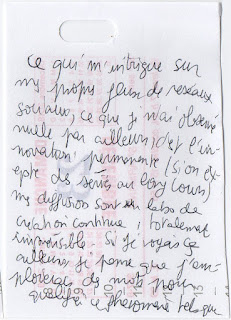 Ce qui m'intrigue sur
mes propres flux de réseaux
sociaux, ce que je n'ai observé
nulle part ailleurs, c'est l'in-
novation permanente (si on ex-
cepte des séries au long cours)
ma diffusion sont un labo de
création continue, totalement
impossible. Si je voyais ça
ailleurs je pense que j'em-
ploierais des mots pour
qualifier ce phénomène tels que